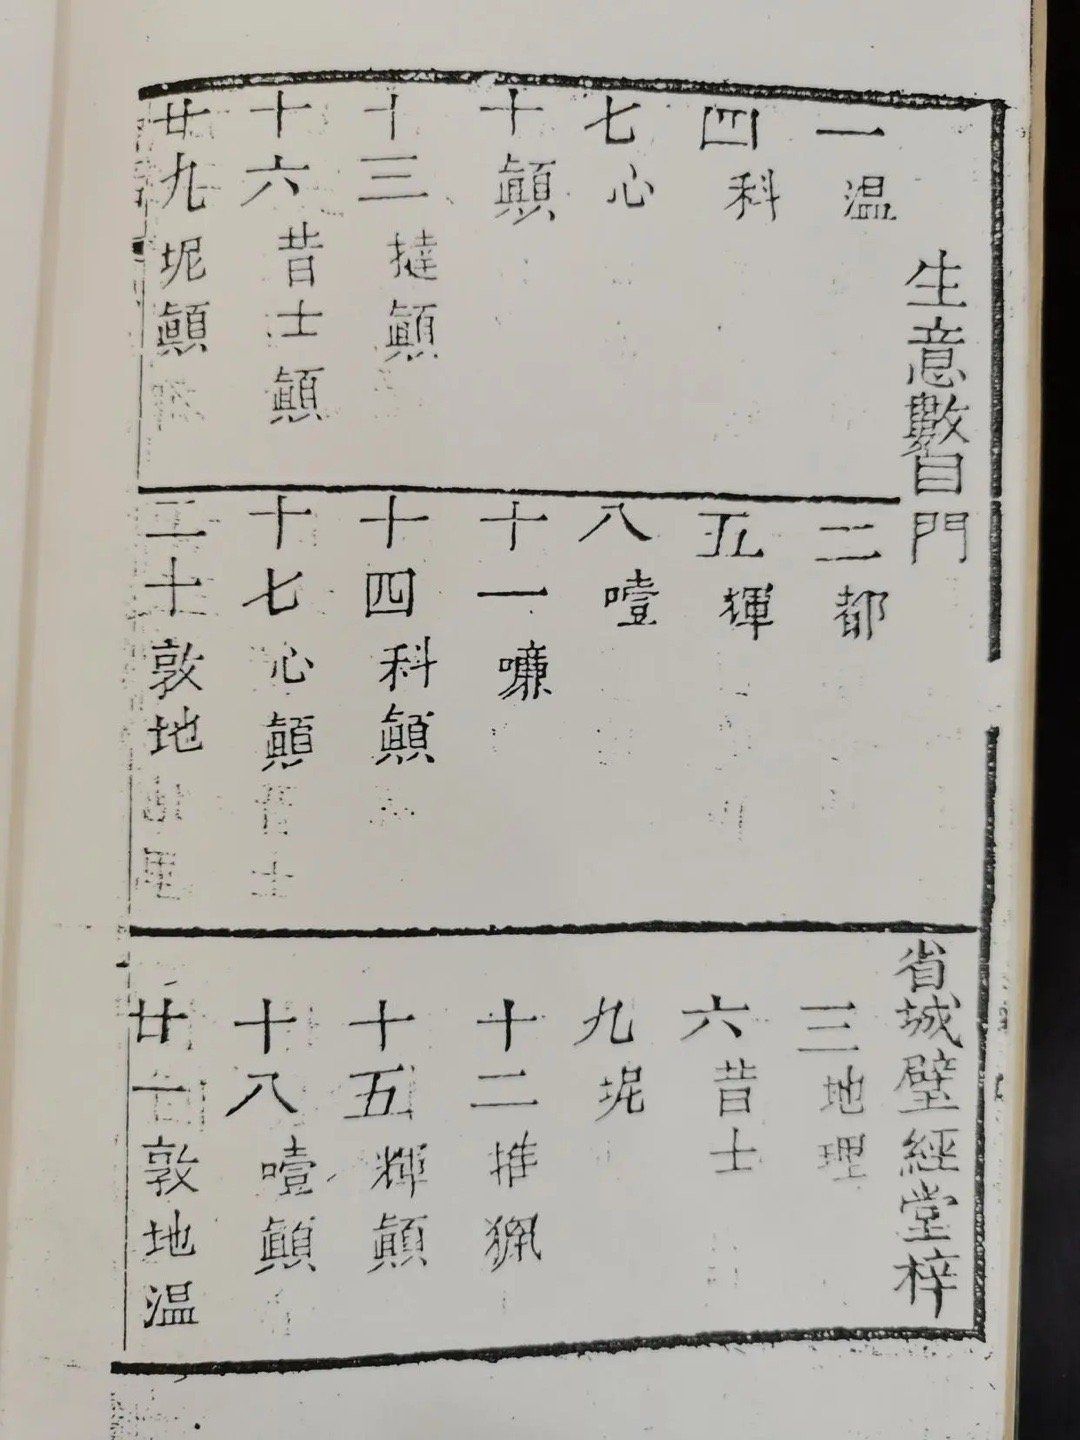 生意數目門
省城璧經堂梓
一温
二都
三地理
四科
五
六昔士
七心
八噎
九坭
十顛
十一
十二推
十三撻顛
十四科顛
十五輝顛
十六昔士顛
十七心顛
十八噎顛
廿九坭顛
二十敦地
廿一敦地温